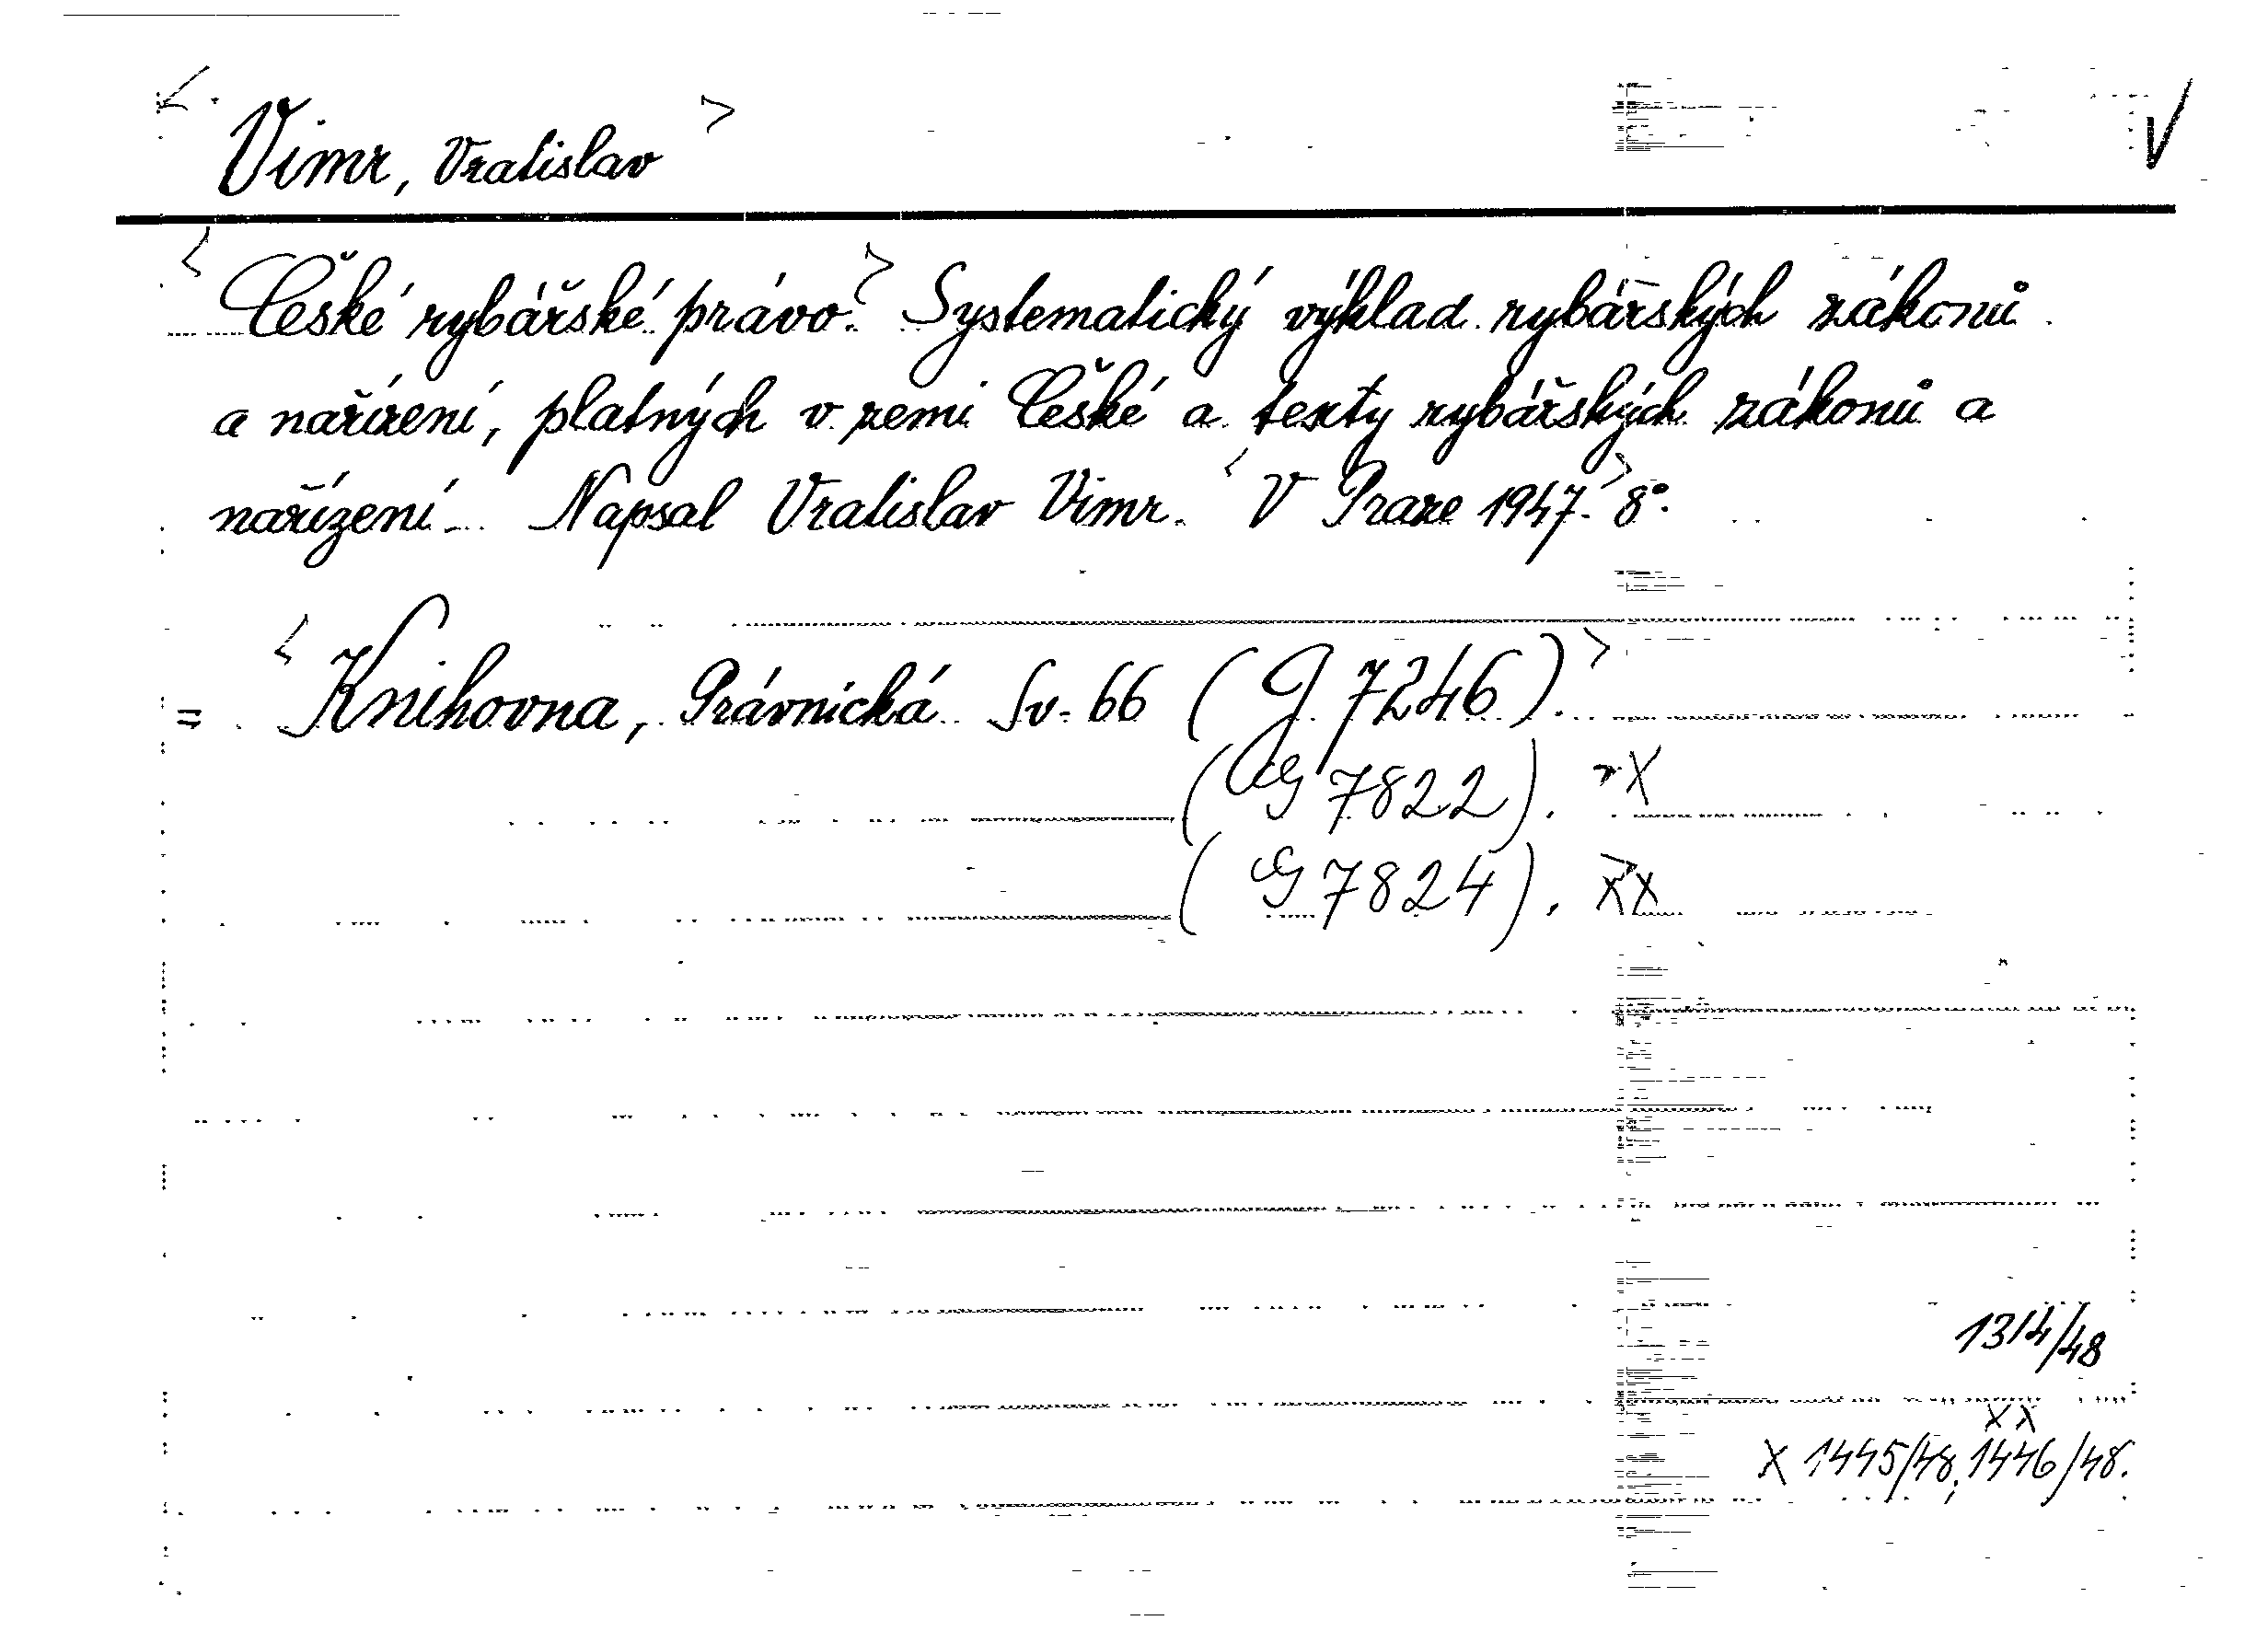 < Vimr, Vratislav > V
< České rybářské právo. > Systematický výklad rybářských zákonů
a nařízení, platných v zemi České a texty rybářských zákonů a
nařízení. Napsal Vratislav Vimr. < V Praze 1947. > 8°.
= < Knihovna, Právnická Sv. 66 (G 7246). >
(G 7822). X
(G 7824). XX
1314/48
XX
X 1445/48, 1446/48.